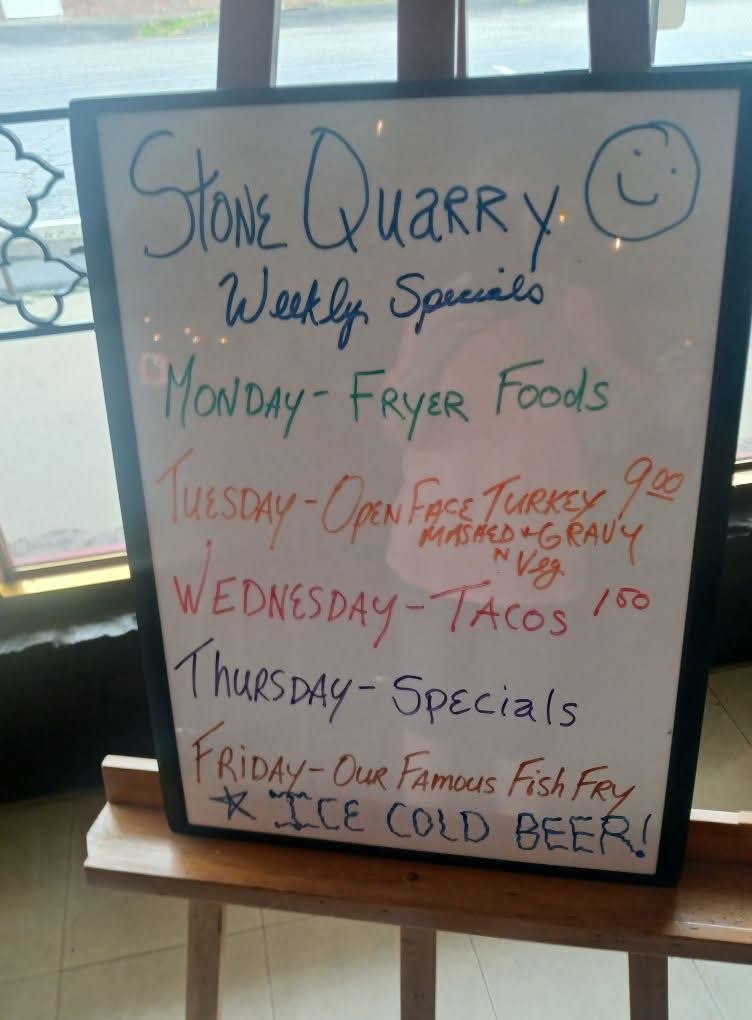 STONE QUARRY
Weekly Specials
MONDAY - FRYER FOODS
TUESDAY - OPEN FACE TURKEY 9.00
MASHED + GRAVY
N Veg.
WEDNESDAY - TACOS 1.50
THURSDAY - Specials
FRIDAY - OUR FAMOUS FISH FRY
ICE COLD BEER!